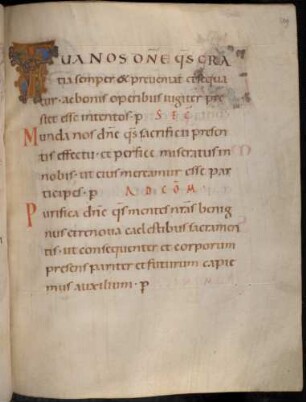 TUA NOS DNE QS GRA
tia semper & preueniat etsequa
tur · ac bonis operibus iugiter pre
stet esse intentos · p SEC
Munda nos dne qs sacrificii presen
tis effectu · et perfice miseratus in
nobis · ut eius mereamur esse par
ticipes · p AD COM
Purifica dne qs mentes nras benig
nus etrenoua caelestibus sacramen
tis · ut consequenter et corporum
presens pariter et futurum capia
mus auxilium · p